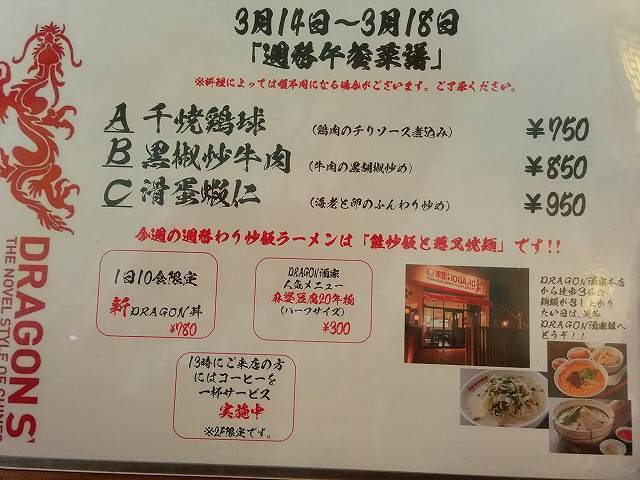 3月14日～3月18日
「週替午餐菜譜」
※料理によっては順不同になる場合がございます。ご了承ください。
A 干焼鶏球 (鶏肉のチリソース煮込み) ¥750
B 黒椒炒牛肉 (牛肉の黒胡椒炒め) ¥850
C 滑蛋蝦仁 (海老と卵のふんわり炒め) ¥950
今週の週替わり炒飯ラーメンは「鮭炒飯と葱叉焼麺」です!!
1日10食限定
新DRAGON丼
¥780
DRAGON酒家
人気メニュー
麻婆豆腐20年桶
(ハーフサイズ)
¥300
13時にご来店の方
にはコーヒーを
一杯サービス
実施中
※2F限定です。
DRAGON酒家本店
から徒歩3
DRAGON酒家
どうぞ!!
DRAGON S'
THE NOVEL STYLE OF CHINES